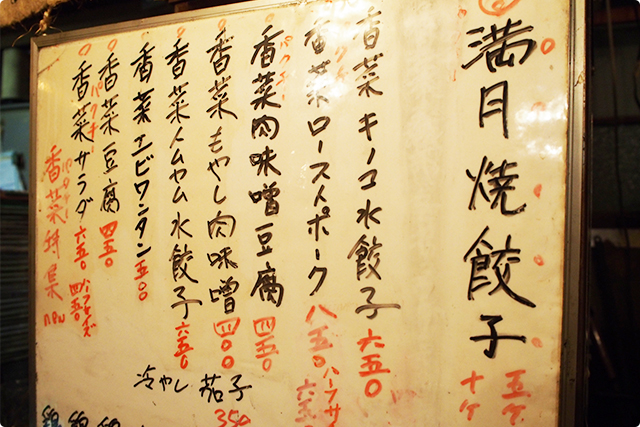 満月焼餃子
五ケ
十ケ
香菜キノコ水餃子 六五〇
香菜ローストポーク 八五〇
ハーフサ
六五
香菜肉味噌豆腐 四五〇
香菜もやし肉味噌 四〇〇
香菜トムヤム水餃子 六五〇
香菜エビワンタン 五〇〇
香菜豆腐 四五〇
パクチー
香菜サラダ 六五〇
ハーフサイズ
四五〇
香菜特集
new
冷やし茄子
350